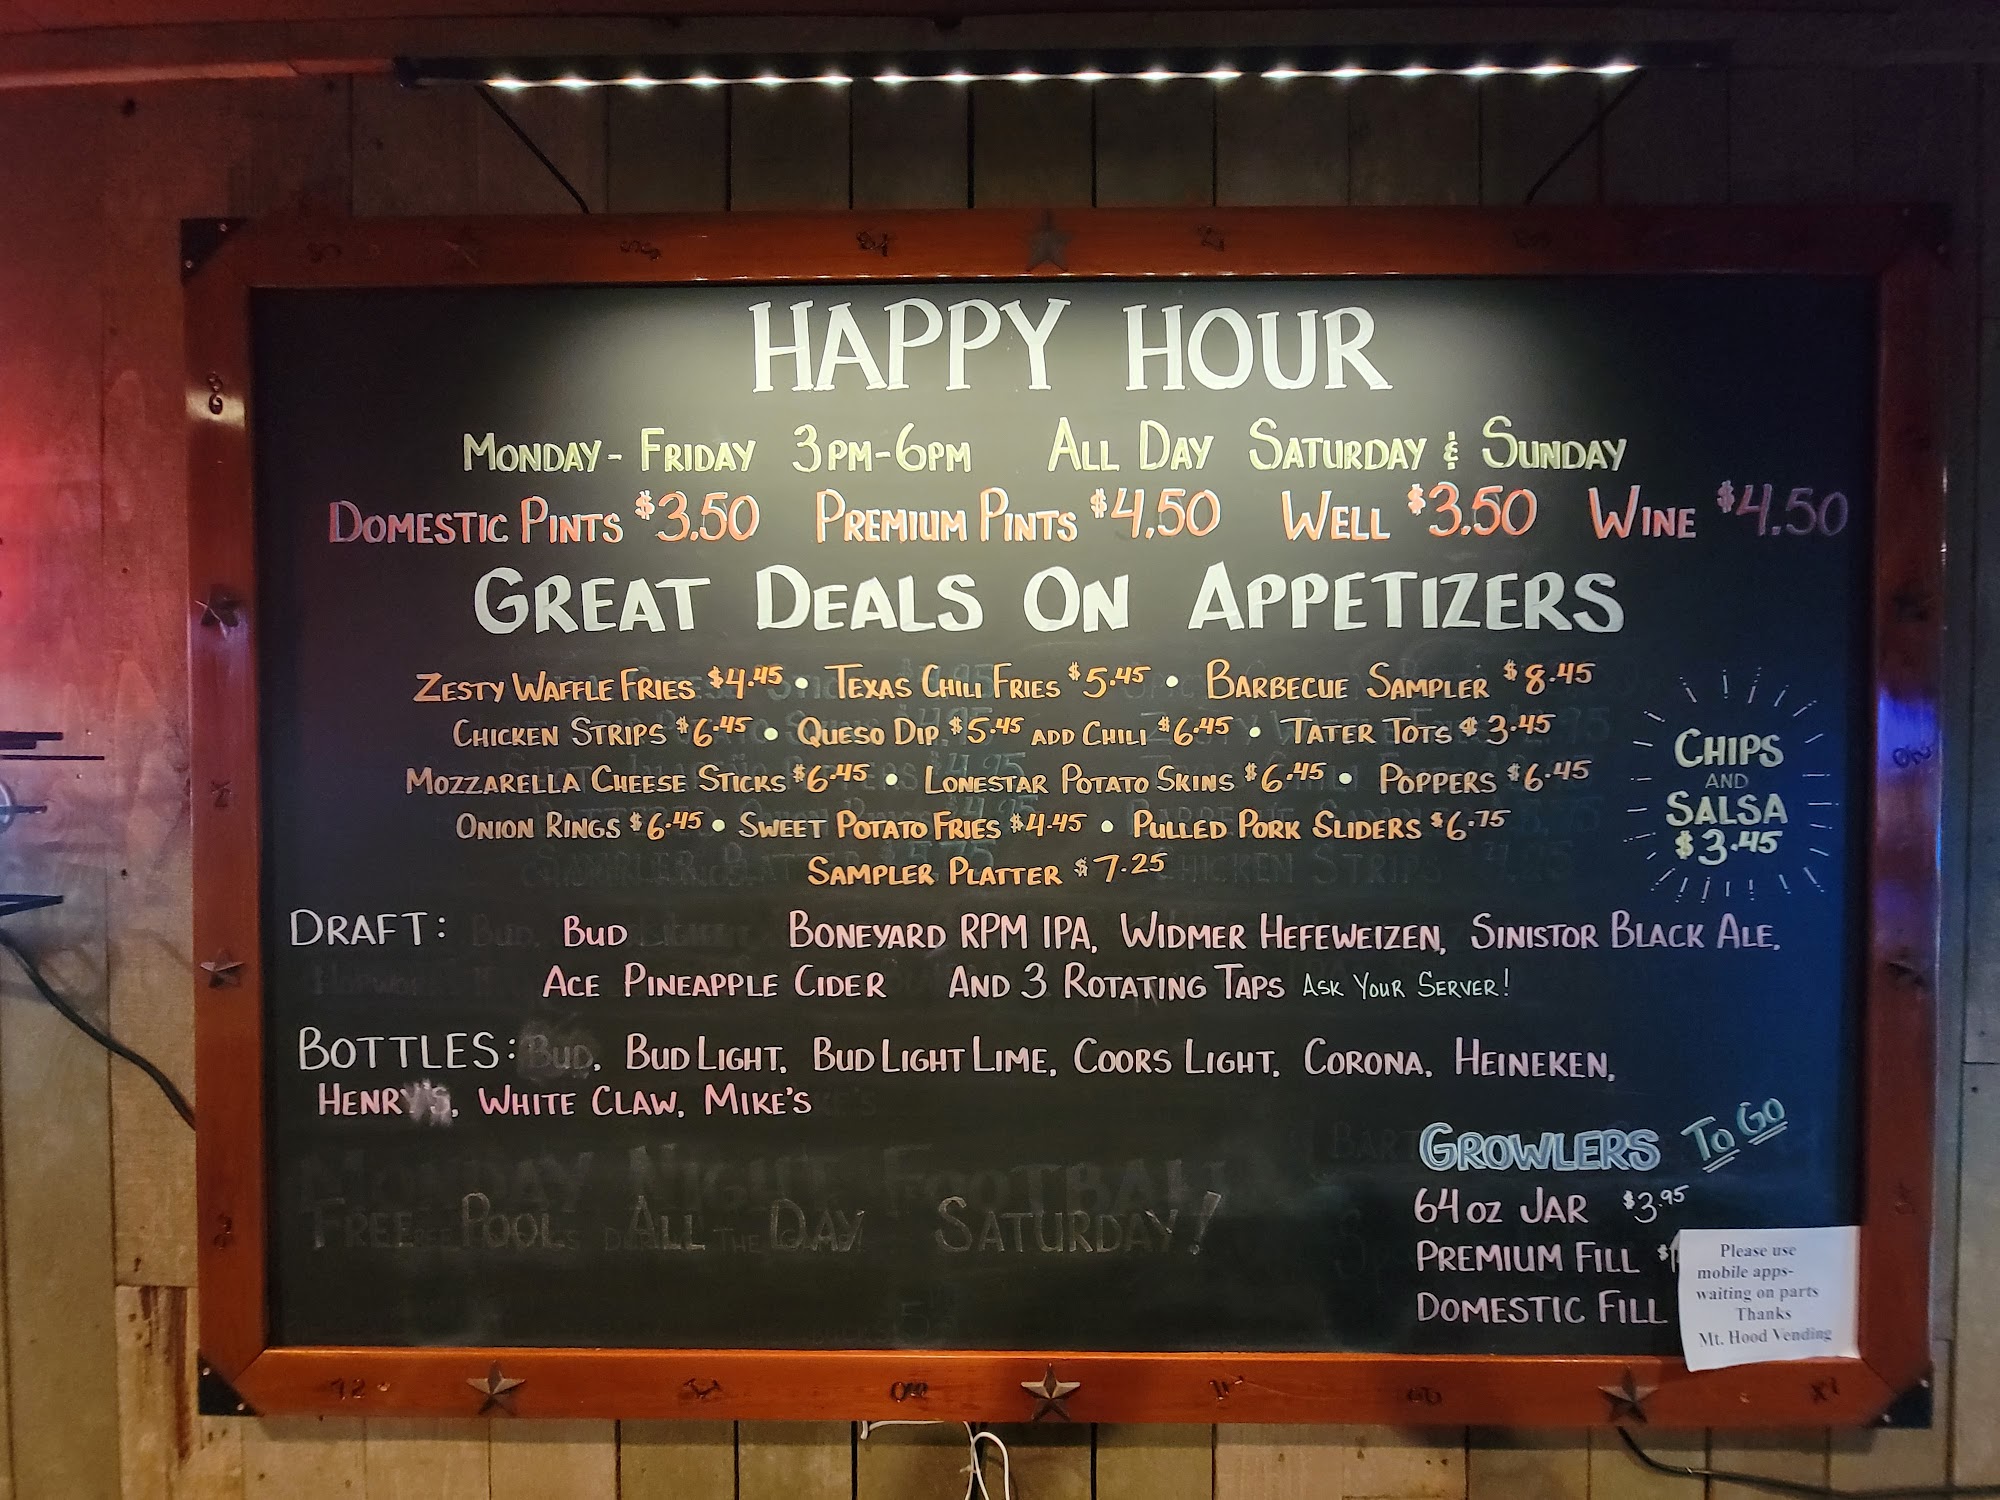 HAPPY HOUR
MONDAY - FRIDAY 3PM-6PM ALL DAY SATURDAY & SUNDAY
DOMESTIC PINTS $3.50 PREMIUM PINTS $4.50 WELL $3.50 WINE $4.50
GREAT DEALS ON APPETIZERS
ZESTY WAFFLE FRIES $4.45 • TEXAS CHILI FRIES $5.45 • BARBECUE SAMPLER $8.45
CHICKEN STRIPS $6.45 • QUESO DIP $5.45 ADD CHILI $6.45 • TATER TOTS $3.45
MOZZARELLA CHEESE STICKS $6.45 • LONESTAR POTATO SKINS $6.45 • POPPERS $6.45
ONION RINGS $6.45 • SWEET POTATO FRIES $4.45 • PULLED PORK SLIDERS $6.75
SAMPLER PLATTER $7.25
CHIPS
AND
SALSA
$3.45
DRAFT: BUD BONEYARD RPM IPA, WIDMER HEFEWEIZEN, SINISTOR BLACK ALE,
ACE PINEAPPLE CIDER AND 3 ROTATING TAPS ASK YOUR SERVER!
BOTTLES: BUD, BUD LIGHT, BUD LIGHT LIME, COORS LIGHT, CORONA, HEINEKEN,
HENRY'S, WHITE CLAW, MIKE'S
MONDAY NIGHT FOOTBALL
FREE POOL ALL DAY SATURDAY!
GROWLERS TO GO
64 OZ JAR $3.95
PREMIUM FILL $1
DOMESTIC FILL
Please use
mobile apps-
waiting on parts
Thanks
Mt. Hood Vending